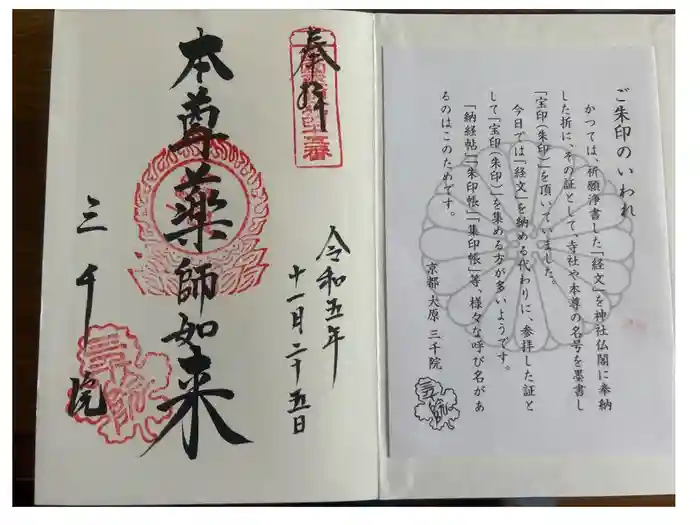 ご朱印のいわれ
かつては、祈願浄書した「経文」を神社仏閣に奉納
した折に、その証として、寺社や本尊の名号を墨書し
「宝印(朱印)」を頂いていました。
今日では「経文」を納める代わりに、参拝した証と
して「宝印(朱印)」を集める方が多いようです。
「納経帖」「朱印帳」「集印帳」等、様々な呼び名があ
るのはこのためです。
京都・大原 三千院
奉拝
令和五年
十一月二十五日
本尊薬師如来
三千院